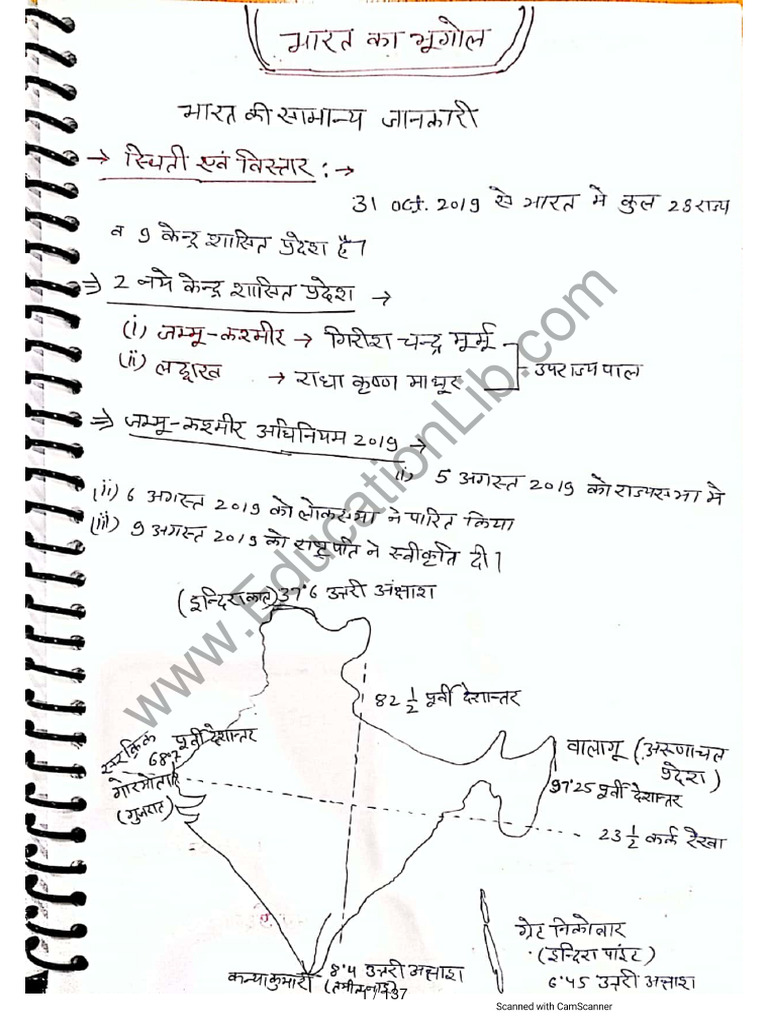 भारत का भूगोल
भारत की सामान्य जानकारी
→ स्थिती एवं विस्तार :→
31 oct. 2019 से भारत मे कुल 28 राज्य
व 9 केन्द्र शासित प्रदेश है।
⇒ 2 नये केन्द्र शासित प्रदेश →
(i) जम्मू-कश्मीर → गिरीश चन्द्र मूर्मू
(ii) लद्दाख → राधा कृष्ण माथुर
उपराज्यपाल
⇒ जम्मू-कश्मीर अधिनियम 2019 →
(i) 5 अगस्त 2019 को राज्यसभा मे
(ii) 6 अगस्त 2019 को लोकसभा ने पारित किया
(iii) 9 अगस्त 2019 को राष्ट्रपति ने स्वीकृति दी।
(इन्दिरा काल) 37°6 उत्तरी अंक्षाश
82 1/2 पूर्वी देशान्तर
पूर्वी देशान्तर
68°7
गोरमोता
(गुजरात)
वालागू (अरूणाचल
प्रदेश)
97°25 पूर्वी देशान्तर
23 1/2 कर्क रेखा
ग्रेट निकोबार
(इन्दिरा पांइट)
6°45 उत्तरी अक्षाश
कन्याकुमारी 8°4 उत्तरी अक्षाश
(तमीलनाडु)
1 / 137
www.EducationLib.com
Scanned with CamScanner